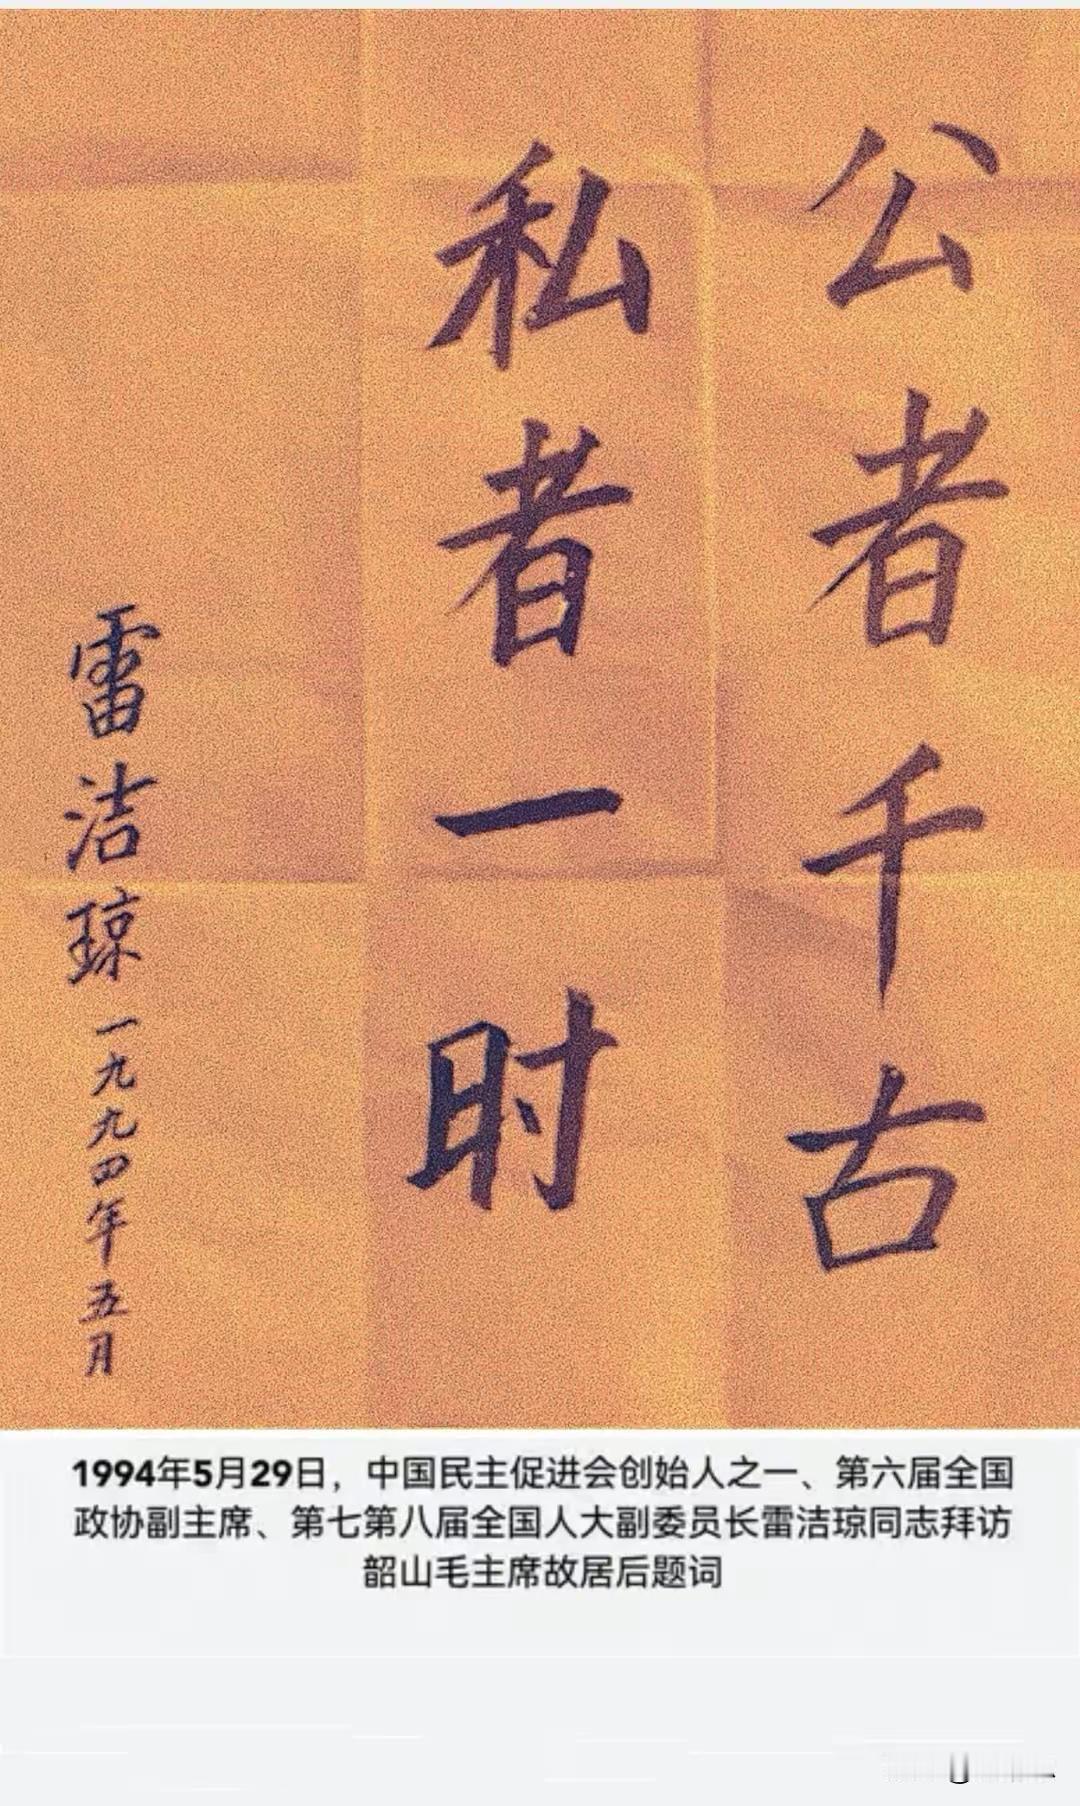 公者千古
私者一时
雷洁琼一九九四年五月
1994年5月29日，中国民主促进会创始人之一、第六届全国
政协副主席、第七第八届全国人大副委员长雷洁琼同志拜访
韶山毛主席故居后题词